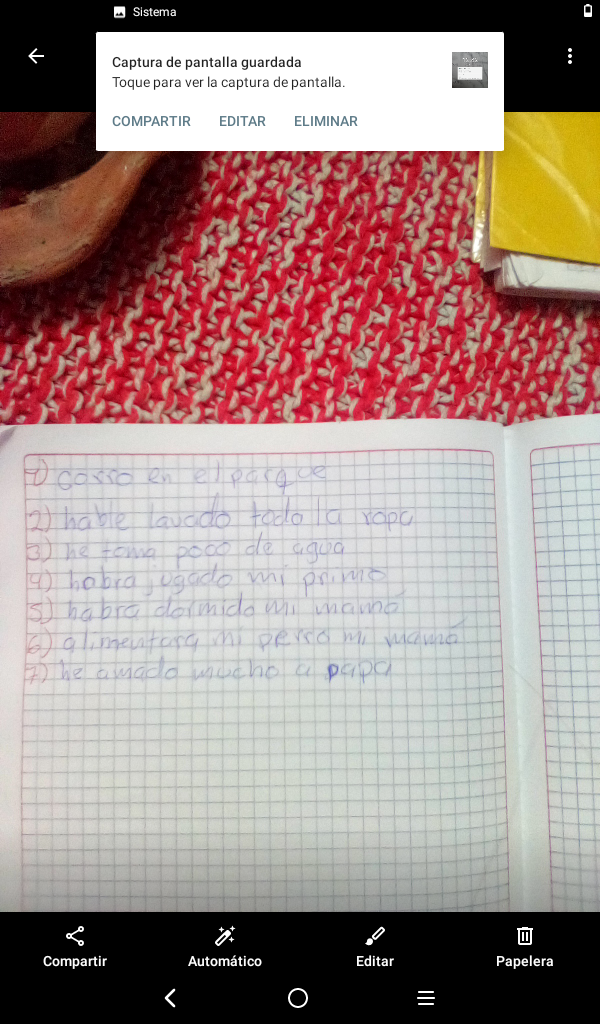 Sistema
Captura de pantalla guardada
Toque para ver la captura de pantalla.
COMPARTIR EDITAR ELIMINAR
1) corro en el parque
2) hable lavado toda la ropa
3) he toma poco de agua
4) habra jugado mi primo
5) habra dormido mi mamá
6) alimentara mi perro mi mamá
7) he amado mucho a papa
Compartir Automático Editar Papelera